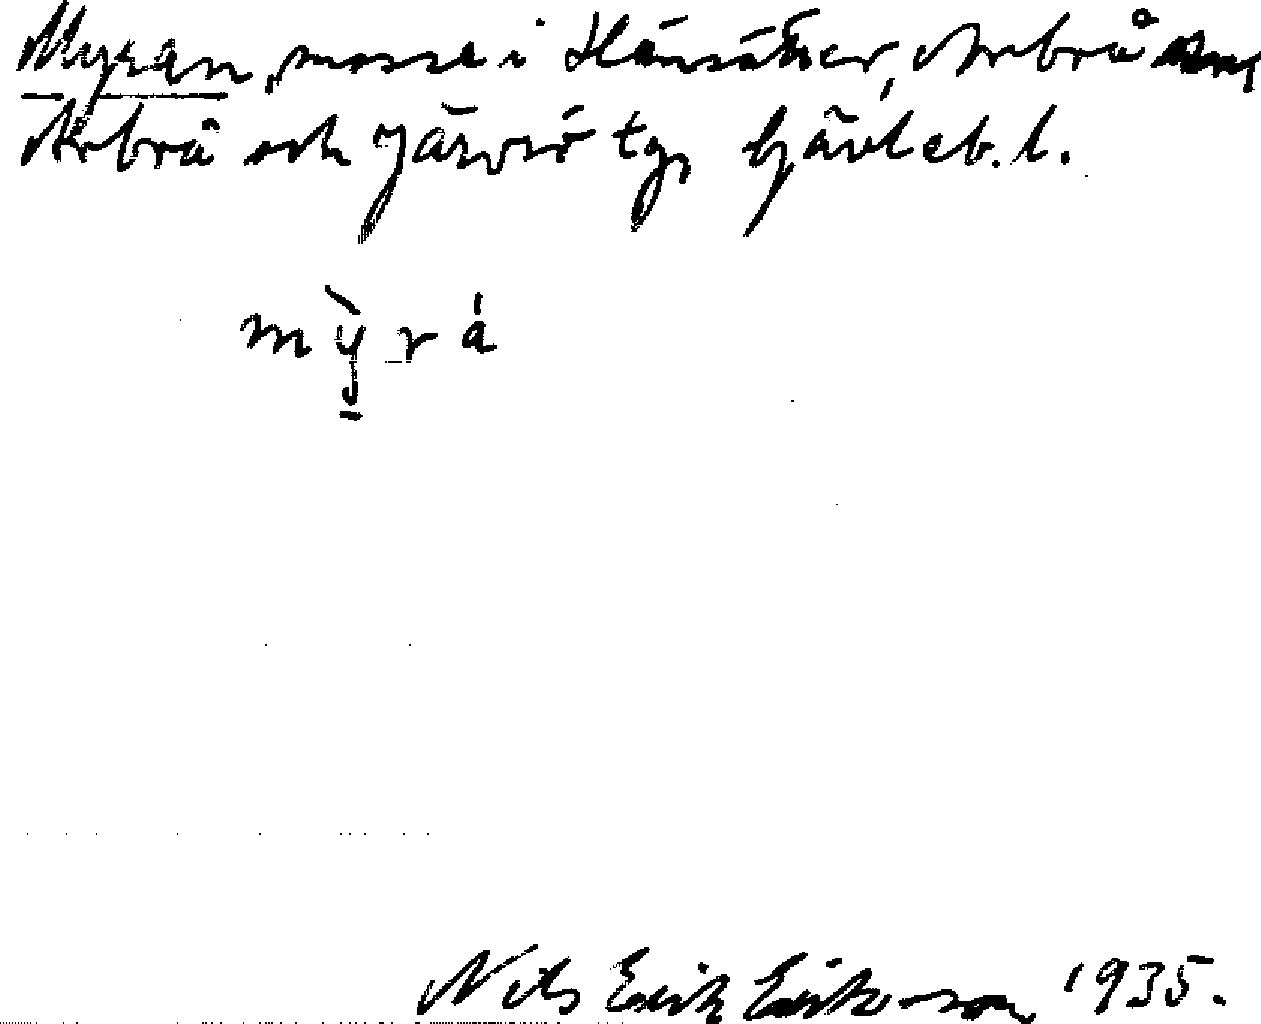 Myran, mosse i Hänsätter, Arbrå sn,
Arbrå och Järvsö tg, Gävleb. l.
mỳrá
Nils Erik Eriksson 1935.